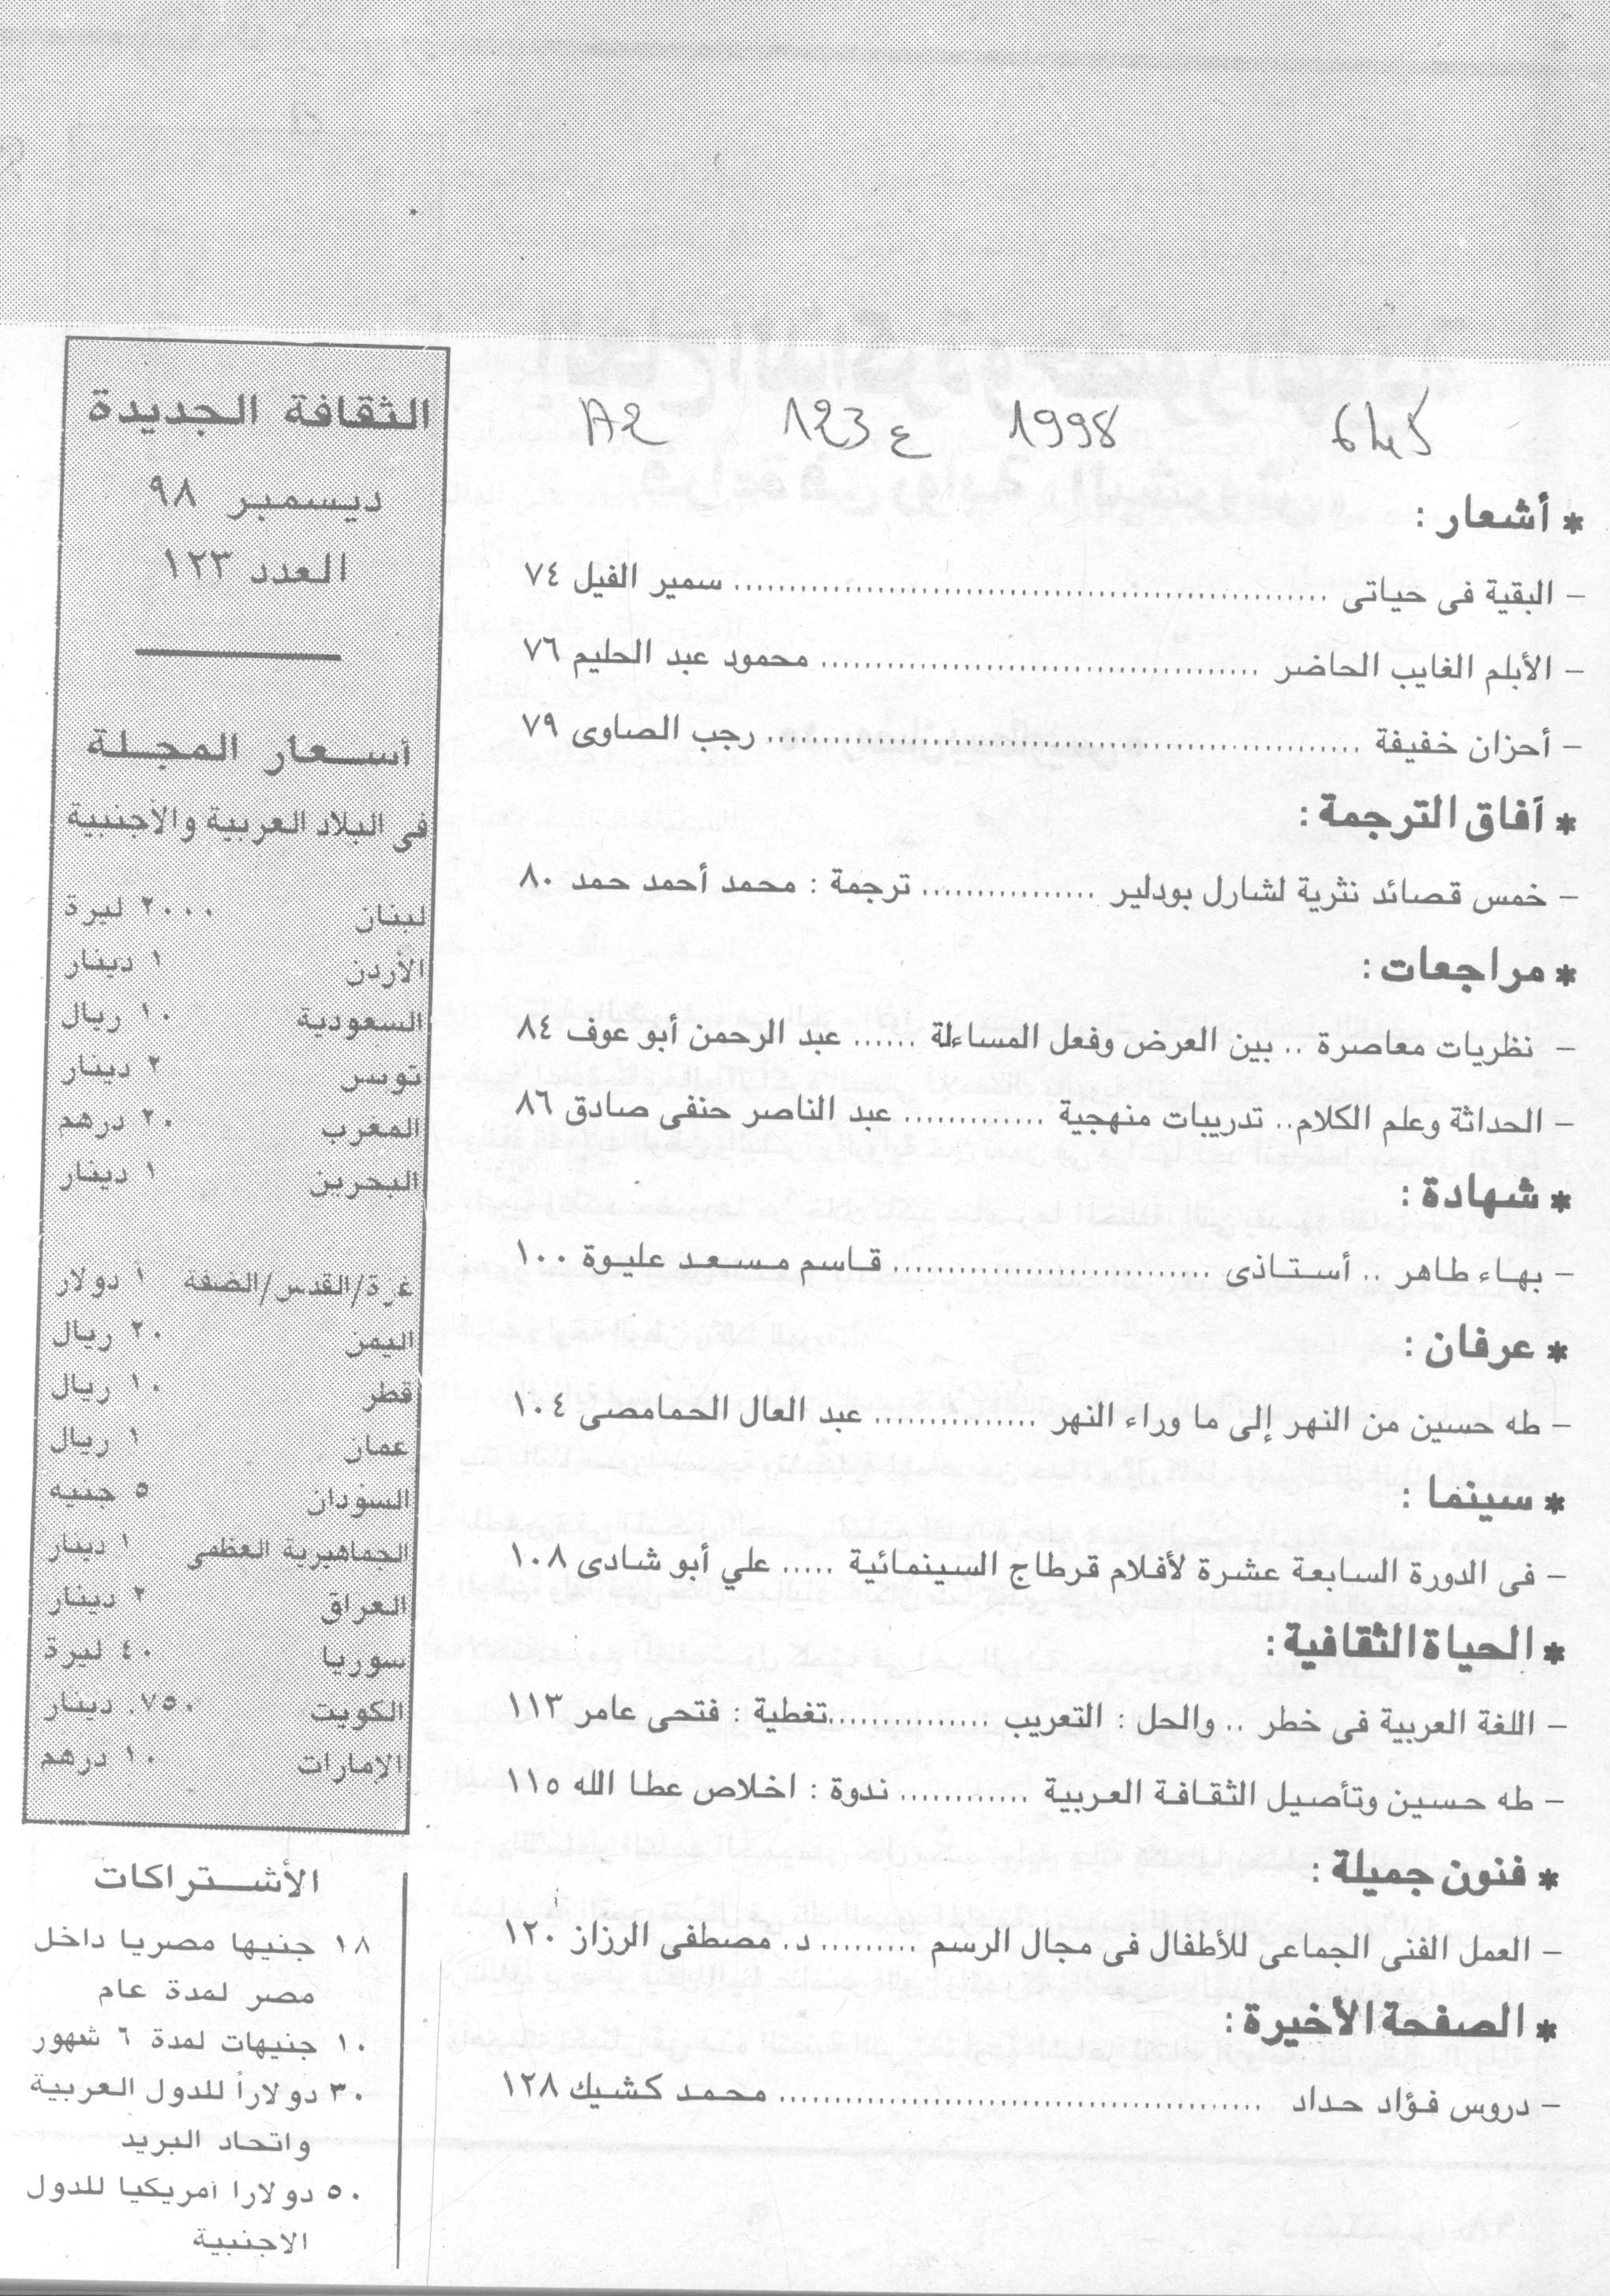 A2 123 ع 1998 645
* أشعار :
- البقية فى حياتى ........................ سمير الفيل ٧٤
- الأبلم الغايب الحاضر ........................ محمود عبد الحليم ٧٦
- أحزان خفيفة ........................ رجب الصاوى ٧٩
* آفاق الترجمة :
- خمس قصائد نثرية لشارل بودلير ................ ترجمة : محمد أحمد حمد ٨٠
* مراجعات :
- نظريات معاصرة .. بين العرض وفعل المساءلة ...... عبد الرحمن أبو عوف ٨٤
- الحداثة وعلم الكلام.. تدريبات منهجية ............. عبد الناصر حنفى صادق ٨٦
* شهادة :
- بهاء طاهر .. أستاذى ........................... قاسم مسعد عليوة ١٠٠
* عرفان :
- طه حسين من النهر إلى ما وراء النهر ............... عبد العال الحمامصى ١٠٤
* سينما :
- فى الدورة السابعة عشرة لأفلام قرطاج السينمائية ..... علي أبو شادى ١٠٨
* الحياة الثقافية :
- اللغة العربية فى خطر .. والحل : التعريب ...............تغطية : فتحى عامر ١١٣
- طه حسين وتأصيل الثقافة العربية ............ ندوة : اخلاص عطا الله ١١٥
* فنون جميلة :
- العمل الفنى الجماعى للأطفال فى مجال الرسم ......... د. مصطفى الرزاز ١٢٠
* الصفحة الأخيرة :
- دروس فؤاد حداد ........................ محمد كشيك ١٢٨
الثقافة الجديدة
ديسمبر ٩٨
العدد ١٢٣
أسعار المجلة
فى البلاد العربية والأجنبية
لبنان ٢٠٠٠ ليرة
الأردن ١ دينار
السعودية ١٠ ريال
تونس ٢ دينار
المغرب ٢٠ درهم
البحرين ١ دينار
غزة/القدس/الضفة ١ دولار
اليمن ٢٠ ريال
قطر ١٠ ريال
عمان ١ ريال
السودان ٥ جنيه
الجماهيرية العظمى ١ دينار
العراق ٢ دينار
سوريا ٤٠ ليرة
الكويت ٧٥٠. دينار
الإمارات ١٠ درهم
الأشتراكات
١٨ جنيها مصريا داخل
مصر لمدة عام
١٠ جنيهات لمدة ٦ شهور
٣٠ دولاراً للدول العربية
واتحاد البريد
٥٠ دولارا أمريكيا للدول
الأجنبية